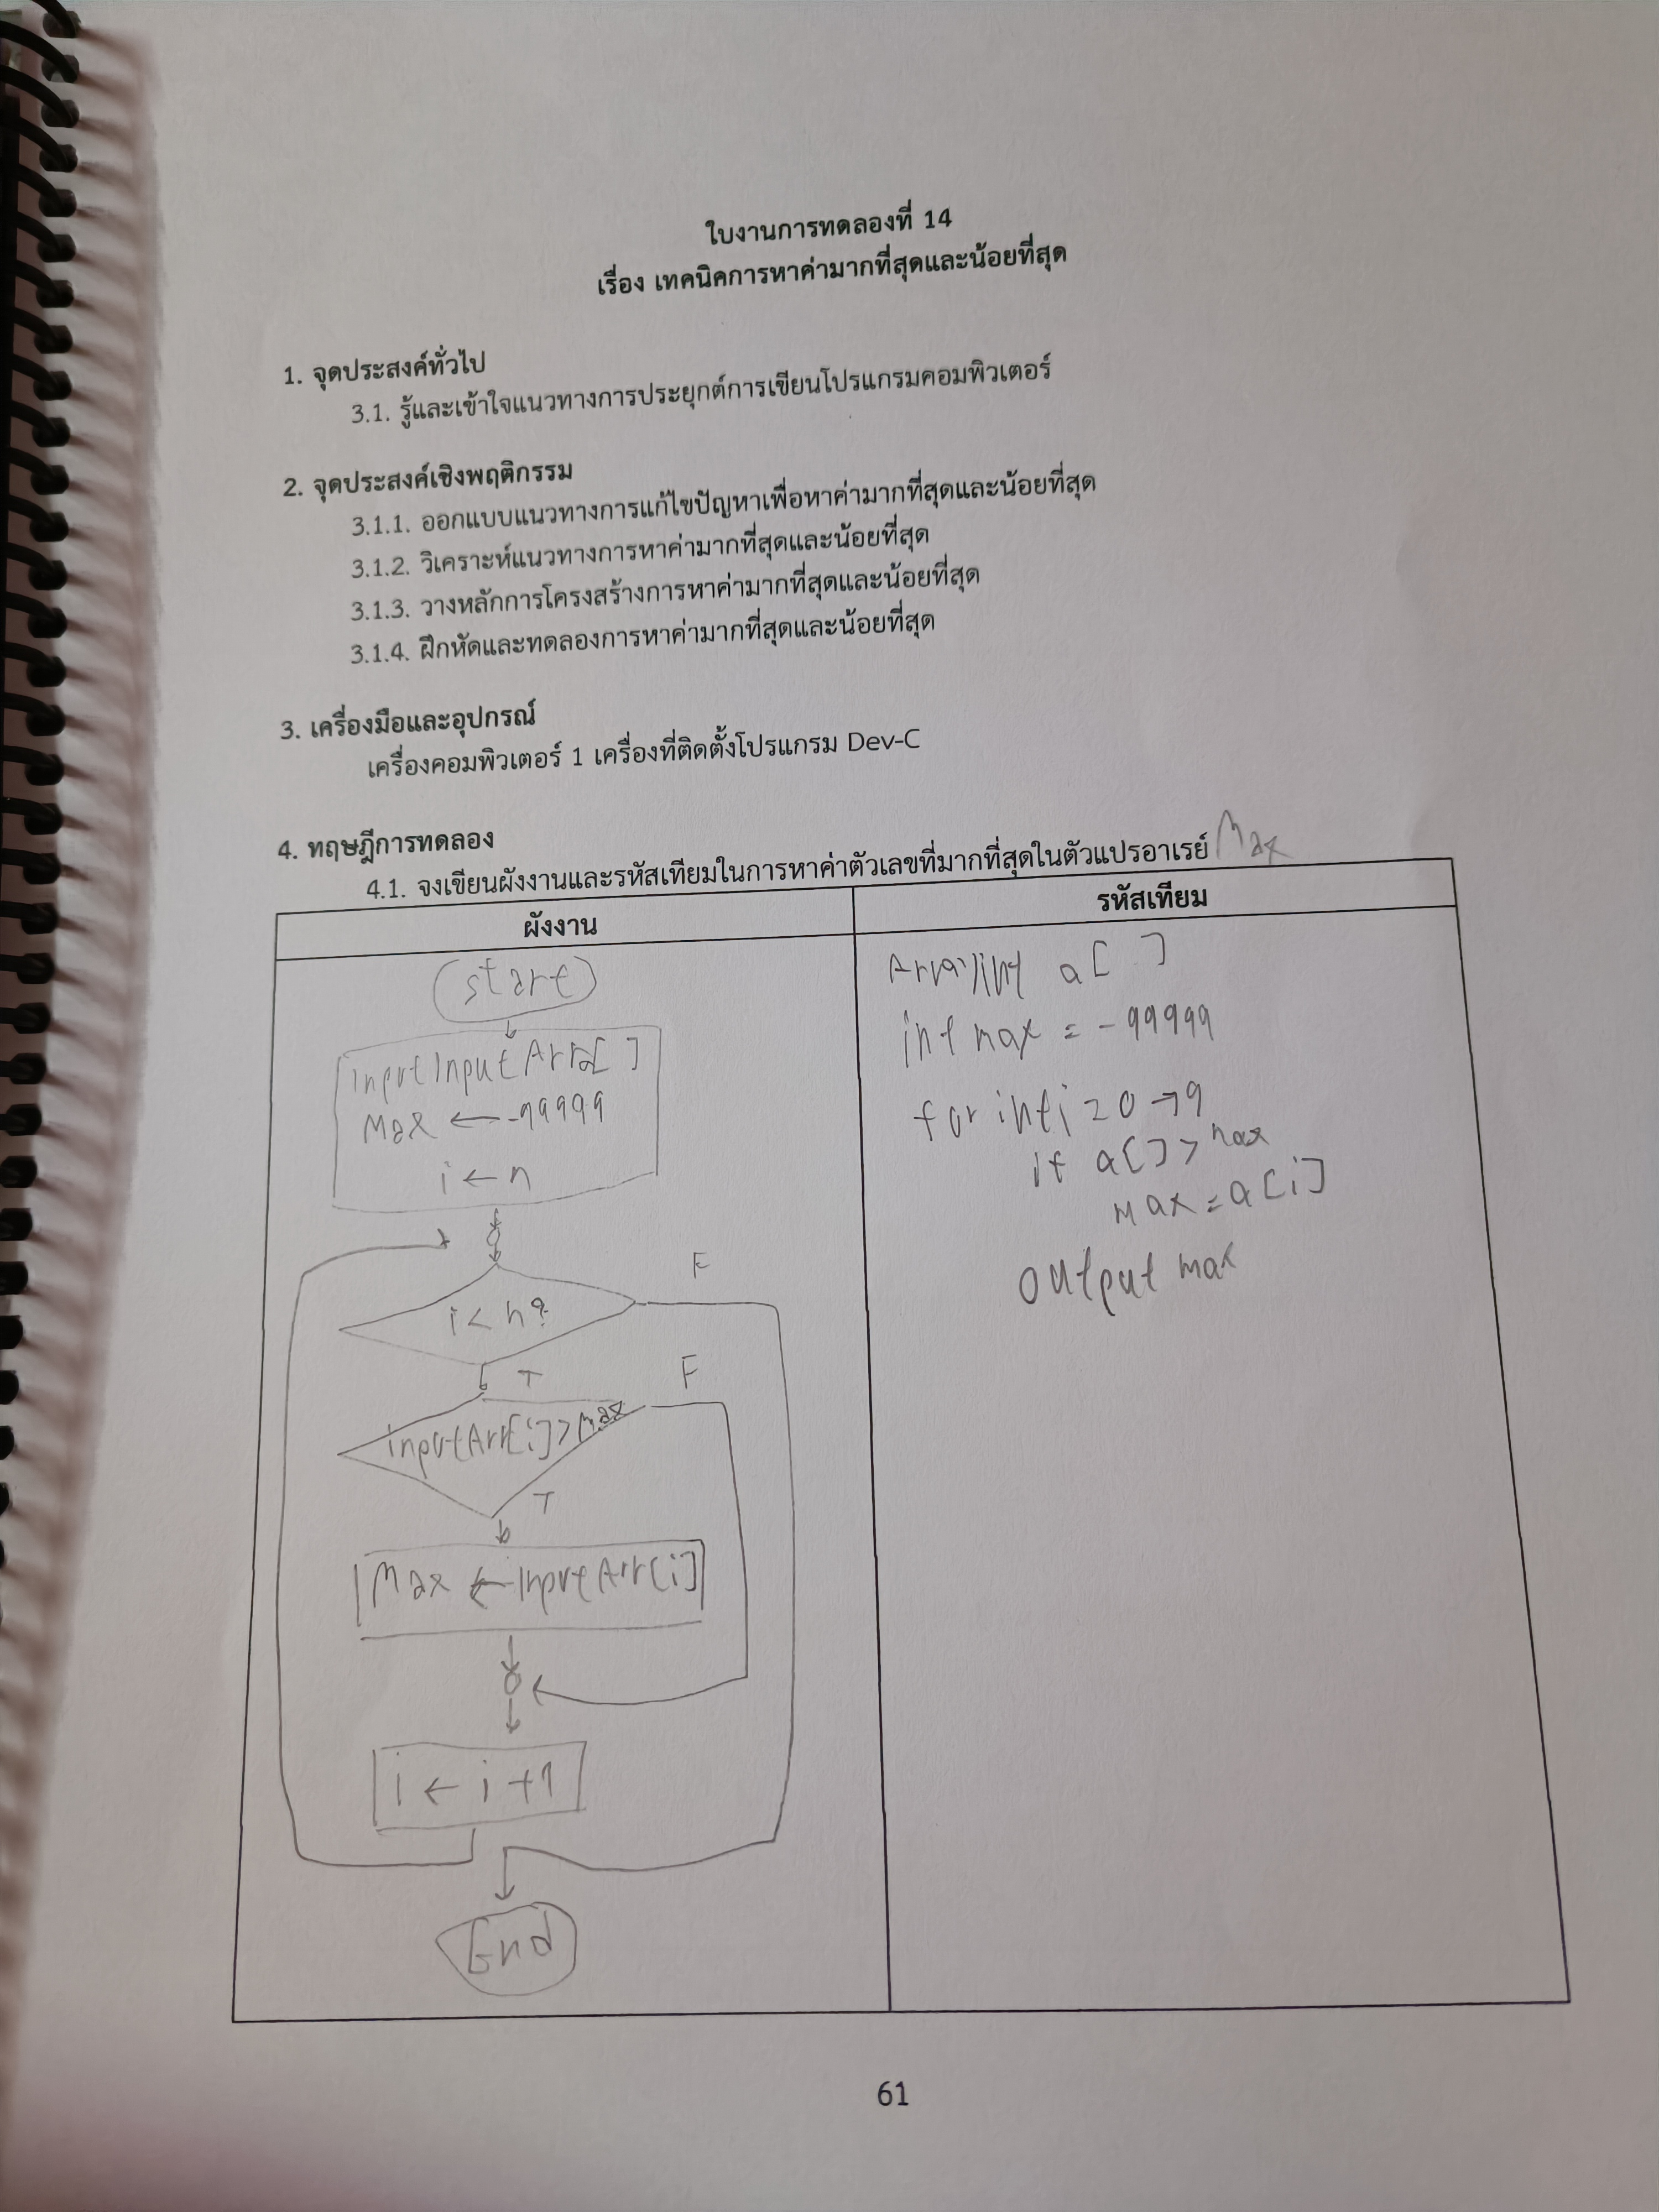 ใบงานการทดลองที่ 14
เรื่อง เทคนิคการหาค่ามากที่สุดและน้อยที่สุด
1. จุดประสงค์ทั่วไป
3.1. รู้และเข้าใจแนวทางการประยุกต์การเขียนโปรแกรมคอมพิวเตอร์
2. จุดประสงค์เชิงพฤติกรรม
3.1.1. ออกแบบแนวทางการแก้ไขปัญหาเพื่อหาค่ามากที่สุดและน้อยที่สุด
3.1.2. วิเคราะห์แนวทางการหาค่ามากที่สุดและน้อยที่สุด
3.1.3. วางหลักการโครงสร้างการหาค่ามากที่สุดและน้อยที่สุด
3.1.4. ฝึกหัดและทดลองการหาค่ามากที่สุดและน้อยที่สุด
3. เครื่องมือและอุปกรณ์
เครื่องคอมพิวเตอร์ 1 เครื่องที่ติดตั้งโปรแกรม Dev-C
4. ทฤษฎีการทดลอง
4.1. จงเขียนผังงานและรหัสเทียมในการหาค่าตัวเลขที่มากที่สุดในตัวแปรอาเรย์ Max
ผังงาน
start
Input InputArr[ ]
Max ← -99999
i ← n
i < n?
F
T
inputArr[i] > Max
F
T
Max ← InputArr[i]
i ← i +1
End
รหัสเทียม
a[ ]
int max = -99999
for int i = 0 → 9
if a[ ] > max
max = a[i]
output max
61